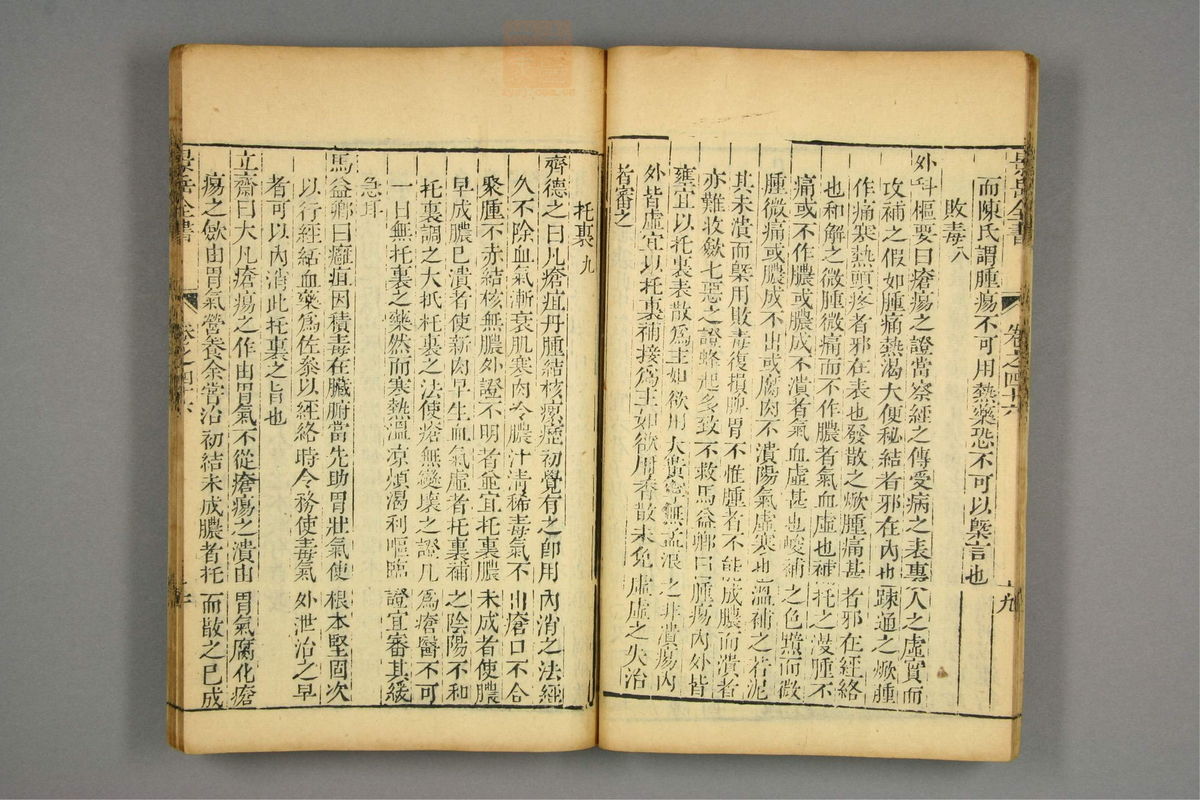 景岳全書 卷之四十六 十九
而陳氏謂腫瘍不可用熱藥恐不可以槩言也
敗毒八
外科樞要曰瘡瘍之證當察經之傳受病之表裏人之虛實而
攻補之假如腫痛熱渴大便秘結者邪在內也疎通之焮腫
作痛寒熱頭疼者邪在表也發散之焮腫痛甚者邪在經絡
也和解之微腫微痛而不作膿者氣血虛也補托之漫腫不
痛或不作膿或膿成不潰者氣血虛甚也峻補之色黯而微
腫微痛或膿成不出或腐肉不潰陽氣虛寒也溫補之若泥
其未潰而槩用敗毒復損脾胃不惟腫者不能成膿而潰者
亦難收歛七惡之證蜂起多致不救馬益卿曰腫瘍內外皆
壅宜以托裏表散爲主如欲用大黃寧無孟浪之非潰瘍內
外皆虛宜以托裏補接爲主如欲用香散未免虛虛之失治
者審之
托裏九
齊德之曰凡瘡疽丹腫結核瘰癧初覺有之卽用內消之法經
久不除血氣漸衰肌寒肉冷膿汁淸稀毒氣不出瘡口不合
聚腫不赤結核無膿外證不明者並宜托裏膿未成者使膿
早成膿已潰者使新肉早生血氣虛者托裏補之陰陽不和
托裏調之大抵托裏之法使瘡無變壞之證凡爲瘡醫不可
一日無托裏之藥然而寒熱溫凉煩渴利嘔臨證宜審其緩
急耳
馬益卿曰癰疽因積毒在臟腑當先助胃壯氣使根本堅固次
以行經活血藥爲佐參以經絡時令務使毒氣外泄治之早
者可以內消此托裏之旨也
立齋曰大凡瘡瘍之作由胃氣不從瘡瘍之潰由胃氣腐化瘡
瘍之歛由胃氣營養余嘗治初結未成膿者托而散之已成
景岳全書 卷之四十六